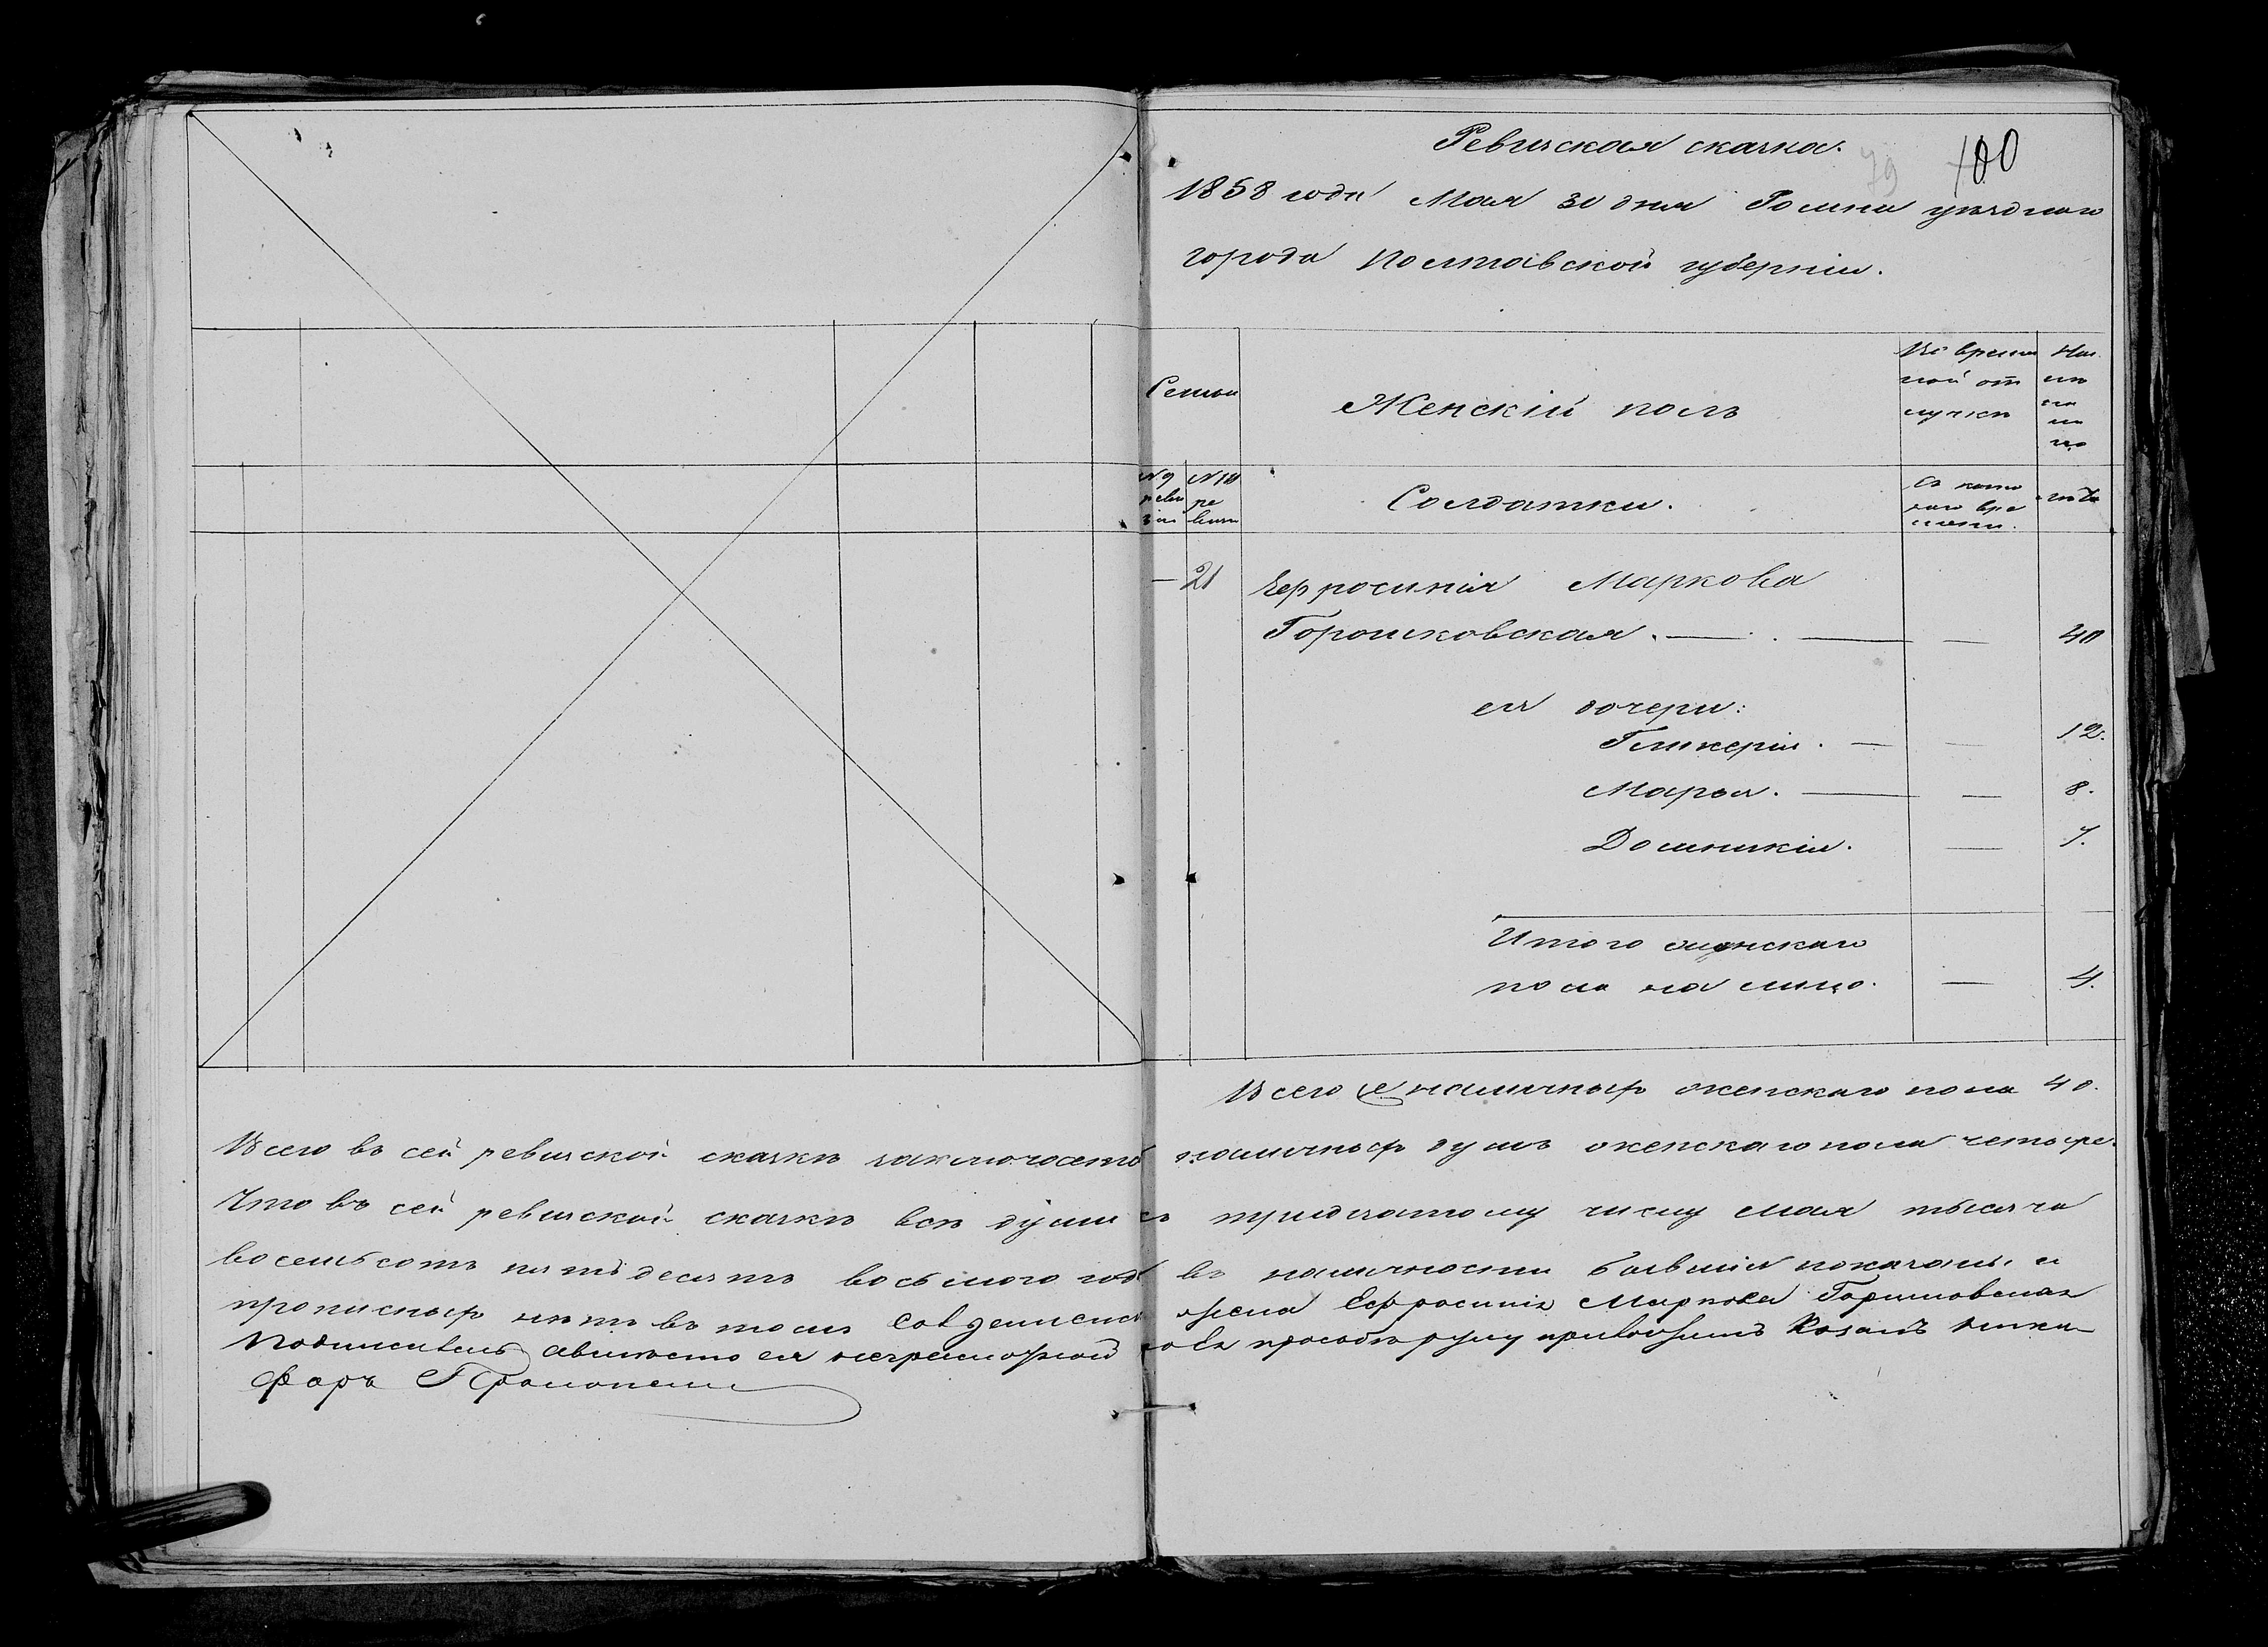 Ревизская сказка.
79 100
1858 года Мая 30 дня Ромна уезднаго
города Полтавской губерніи.
Семьи
Женскій полъ
Во времен
ной от
лучкѣ
На
ли
цо
№ 9 реви зіи
№ 10 ре визіи
Солдатки.
Съ кото
раго вре
мени.
лѣта
— 21 Ефросинія Маркова
Горошковская. — — 40
ея дочери:
Гликерія. — — 12.
Марья. — — 8.
Домникія. — 7.
Итого женскаго
пола на лицо. — 4.
Всего наличныхъ женскаго пола 4 д.
Всего въ сей ревизской сказкѣ заключается наличныхъ душъ женскаго пола четыре.
Что въ сей ревизской сказкѣ всѣ души къ тридцатому числу мая тысяча
восемьсотъ пятьдесятъ восьмого года въ наличности бывшія показаны и
прописныхъ нѣтъ въ томъ жена Ефросинія Маркова Горошковская
авмѣсто ея неграмотной по Ея прозьбѣ руку приложилъ Козакъ Ники-
форъ